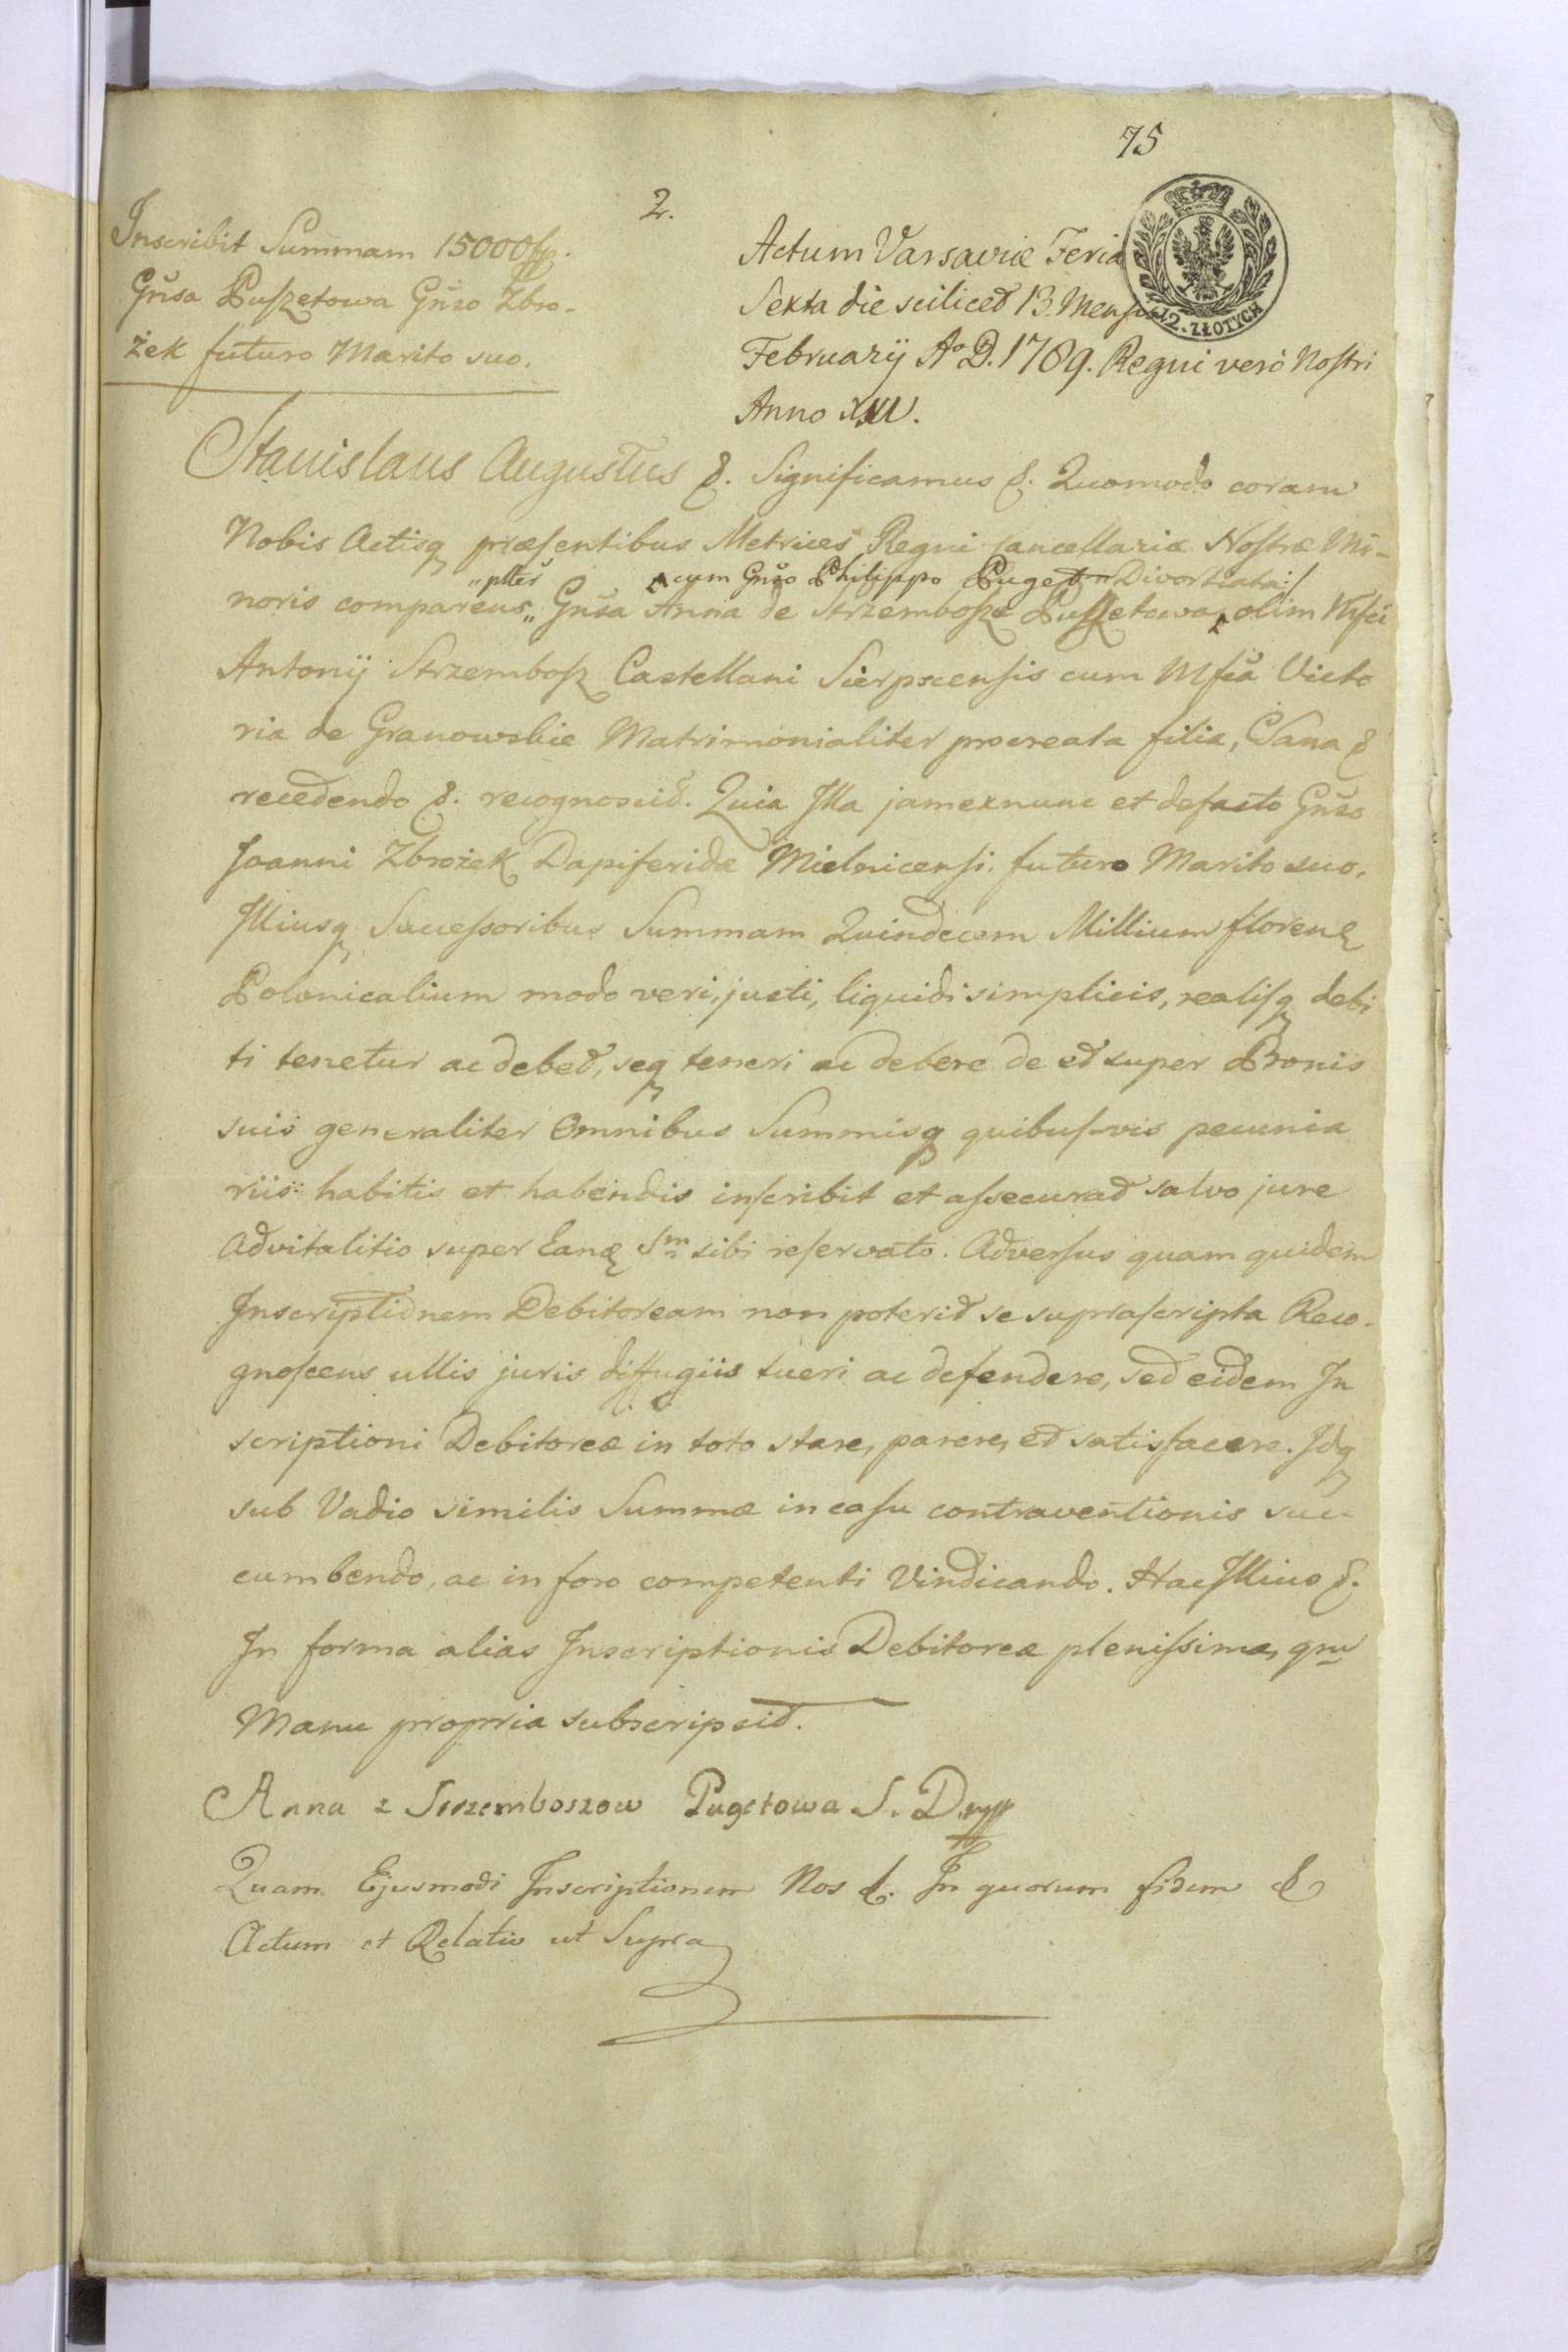 75
2.
Inscribit Summam 15000 fp.
Gnsa Puszetowa Gnso Zbro-
żek futuro Marito suo.
Actum Varsaviæ Feria
Sexta die scilicet 13. Mensis
12. ZŁOTYCH
February A° D. 1789. Regni verò Nostri
Anno XXV.
Stanislaus Augustus &. Significamus &. Quomodo coram
Nobis Actisq præsentibus Metrices Regni Cancellariæ Nostræ Mi-
„plter cum Gnso Philippo Puget „Divortiata:/
noris comparens„ Gnsa Anna de Strzembosze Puszetowa, olim Mfci
Antonij Strzembosz Castellani Sierpscensis cum Mfca Victo
ria de Granowskie Matrimonialiter procreata filia, Sana &
recedendo &. recognoscit. Quia Illa jamexnunc et defacto Gnso
Joanni Zbrożek Dapiferidæ Mielnicensi, futuro Marito suo,
Illiusq Successoribus Summam Quindecem Millium floren
Polonicalium modo veri, justi, liquidi simplicis, realisq debi
ti tenetur ac debet, seq teneri ac debere de et super Bonis
suis generaliter Omnibus Summisq quibusvis pecunia
riis habitis et habendis inscribit et assecurat salvo jure
Advitalitio super Eand Sm sibi reservato. Adversus quam quidem
Inscriptionem Debitoream non poterit se suprascripta Reco-
gnoscens ullis juris diffugiis tueri ac defendere, sed eidem In
scriptioni Debitoreæ in toto stare, parere, et satisfacere. Idq
sub Vadio similis Summæ in casu contraventionis suc-
cumbendo, ac in foro competenti Vindicando. Hac Illius &.
In forma alias Inscriptionis Debitoreæ plenissima, qm
Manu propria subscripsit.
Anna z Strzemboszow Pugetowa S. D. mpp
Quam Ejusmodi Inscriptionem Nos &. In quorum fidem &
Actum et Relatio ut Supra